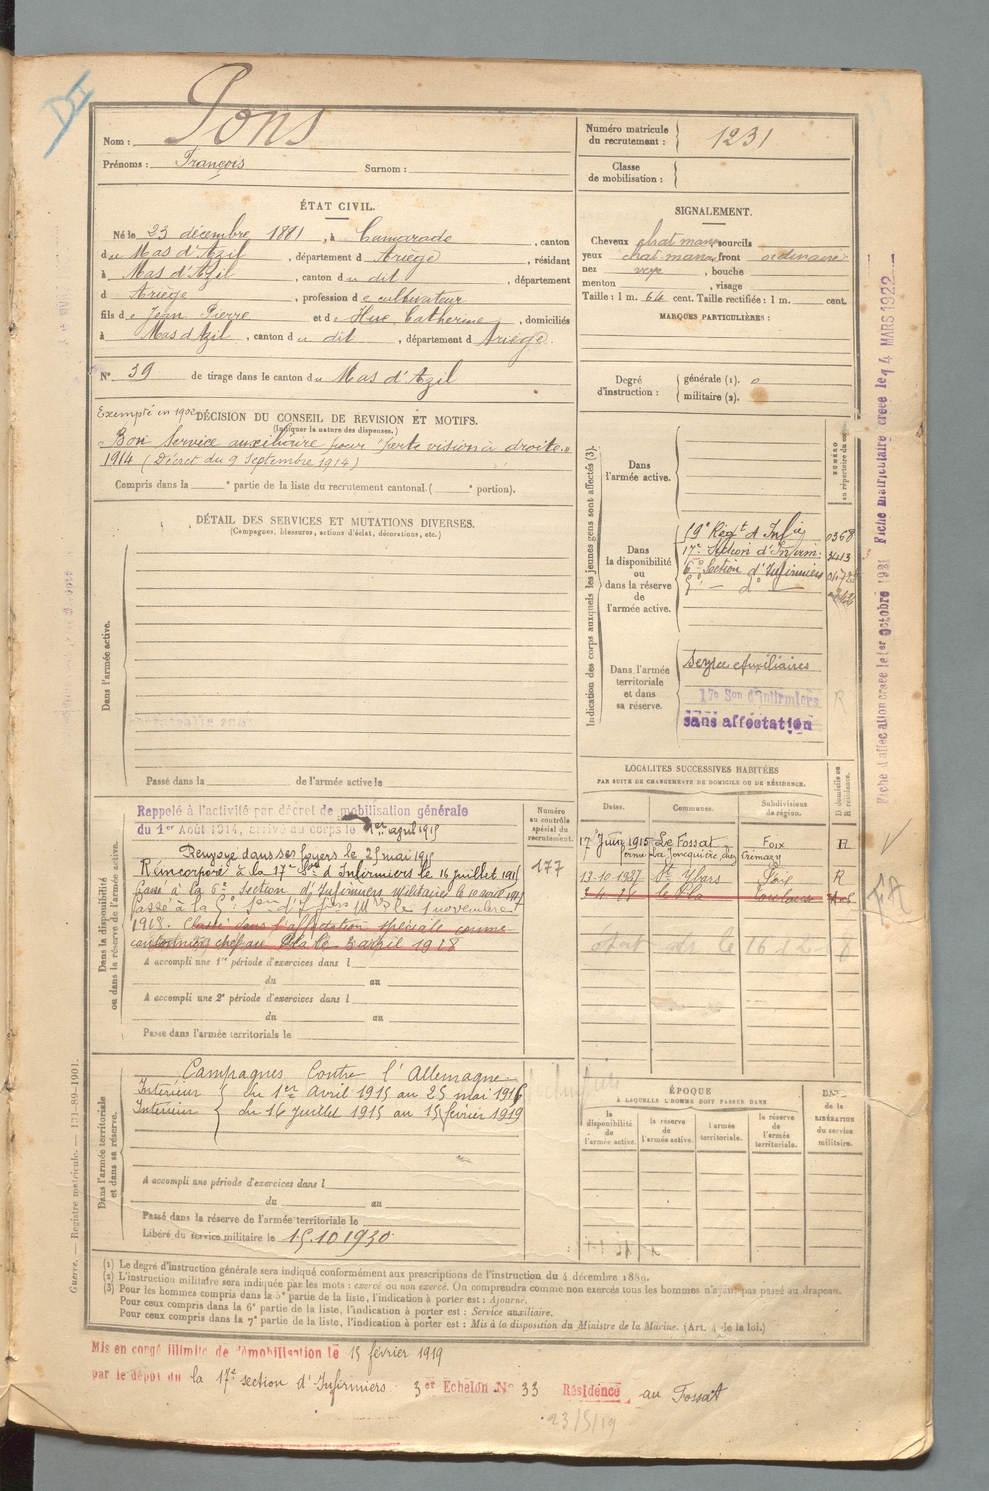 Nom : Pons
Prénoms : François Surnom :
Numéro matricule du recrutement : 1231
Classe de mobilisation :
ÉTAT CIVIL.
Né le 23 décembre 1881, à Camarade, canton
du Mas d'Azil, département d Ariège, résidant
à Mas d'Azil, canton du dit, département
d Ariège, profession de cultivateur
fils de Jean Pierre et de Hue, Catherine, domiciliés
à Mas d'Azil, canton du dit, département d Ariège.
N° 39 de tirage dans le canton du Mas d'Azil
SIGNALEMENT.
Cheveux chat marron sourcils
yeux chat marron, front ordinaire
nez , bouche
menton , visage
Taille : 1 m. 64 cent. Taille rectifiée : 1 m. cent.
MARQUES PARTICULIÈRES :
Degré d'instruction : générale (1). 0
militaire (2).
Exempté en 1902
DÉCISION DU CONSEIL DE REVISION ET MOTIFS.
(Indiquer la nature des dispenses.)
Bon Service auxiliaire pour "perte vision à droite"
1914 (Décret du 9 Septembre 1914)
Compris dans la ᵉ partie de la liste du recrutement cantonal. ( ᵉ portion).
DÉTAIL DES SERVICES ET MUTATIONS DIVERSES.
(Campagnes, blessures, actions d'éclat, décorations, etc.)
Dans l'armée active.
Passé dans la de l'armée active le
Indication des corps auxquels les jeunes gens sont affectés (3).
NUMÉRO au répertoire du corps
Dans l'armée active.
Dans la disponibilité ou dans la réserve de l'armée active.
59e Régt d'Infie 0368
17e Section d'Infirm. 3413
6e Section d'Infirmiers
Dans l'armée territoriale et dans sa réserve.
Service Auxiliaires
17e Son d'Infirmiers R
sans affectation
Dans la disponibilité ou dans la réserve de l'armée active.
Rappelé à l'activité par décret de mobilisation générale
du 1er Août 1914, arrivé au corps le 1er avril 1915
Renvoyé dans ses foyers le 25 mai 1915
Réincorporé à la 17e Son d'Infirmiers le 16 juillet 1915
Passé à la 6e Section d'Infirmiers Militaires le 10 avril 1917
Passé à la le 1 novembre
1918. Classé dans l'affectation spéciale comme
cantonnier chef au Pla le 3 avril 1928
A accompli une 1re période d'exercices dans l
du au
A accompli une 2e période d'exercices dans l
du au
Passé dans l'armée territoriale le
Numéro au contrôle spécial du recrutement.
177
LOCALITÉS SUCCESSIVES HABITÉES
PAR SUITE DE CHANGEMENTS DE DOMICILE OU DE RÉSIDENCE.
Dates. Communes. Subdivisions de région. D domicile ou R résidence.
17 Juin 1915 Le Fossat Foix R
ferme La Jonquière chez
13-10-1927 St Ybars Foix R
3-4-28 le Pla Toulouse
Dans l'armée territoriale et dans sa réserve.
Campagnes Contre l'Allemagne
Intérieur du 1er Avril 1915 au 25 mai 1916
Intérieur du 16 juillet 1915 au 15 février 1919
A accompli une période d'exercices dans l
du au
Passé dans la réserve de l'armée territoriale le
Libéré du service militaire le 15.10 1930
ÉPOQUE
À LAQUELLE L'HOMME DOIT PASSER DANS
la disponibilité de l'armée active.
la réserve de l'armée active.
l'armée territoriale.
la réserve de l'armée territoriale.
DATE de la LIBÉRATION du service militaire.
(1) Le degré d'instruction générale sera indiqué conformément aux prescriptions de l'instruction du 4 décembre 1889.
(2) L'instruction militaire sera indiquée par les mots : exercé ou non exercé. On comprendra comme non exercés tous les hommes n'ayant pas passé au drapeau.
(3) Pour les hommes compris dans la 5e partie de la liste, l'indication à porter est : Ajourné.
Pour ceux compris dans la 6e partie de la liste, l'indication à porter est : Service auxiliaire.
Pour ceux compris dans la 7e partie de la liste, l'indication à porter est : Mis à la disposition du Ministre de la Marine. (Art. 4 de la loi.)
Mis en congé illimité de démobilisation le 15 février 1919
par le dépôt du la 17e section d'Infirmiers 3er Echelon N° 33 Résidence au Fossat
23/5/19
Guerre. — Registre matricule. — 131-89-1901.
Fiche d'affectation créée le 1er octobre 1921 Fiche matriculaire créée le 14 MARS 1922